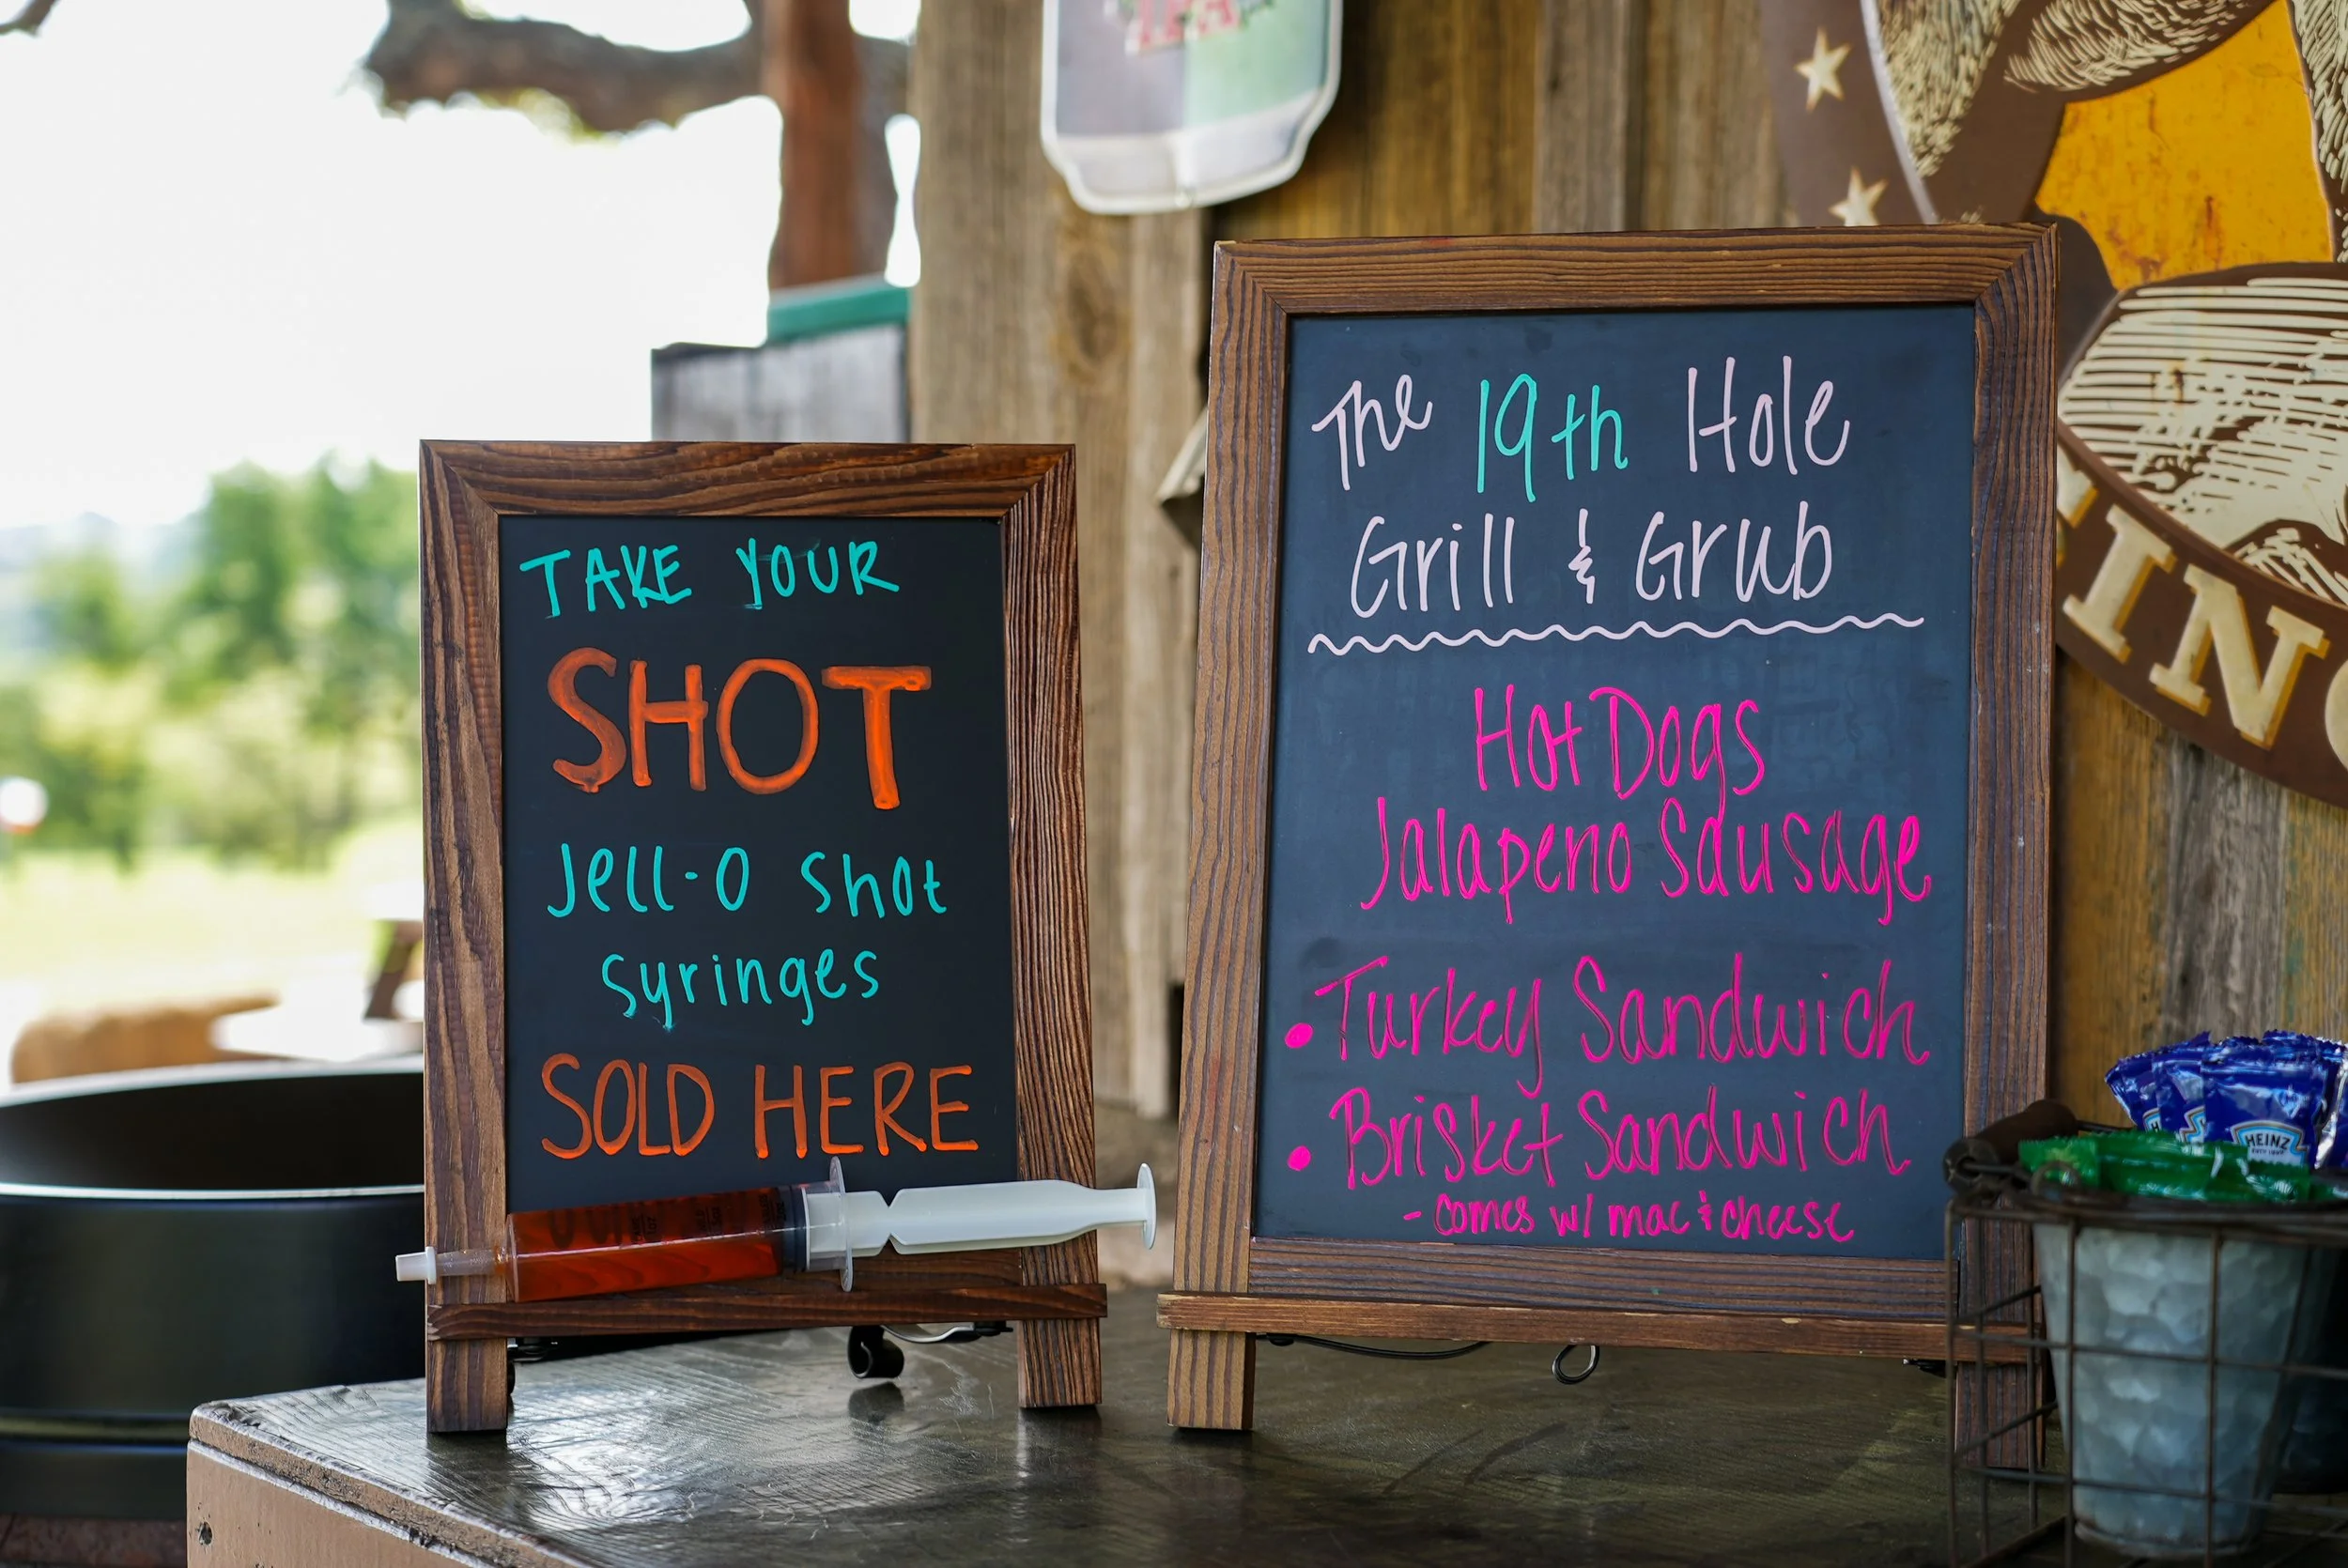 TAKE YOUR
SHOT
Jell-O shot
syringes
SOLD HERE
The 19th Hole
Grill & Grub
Hot Dogs
Jalapeno Sausage
• Turkey Sandwich
• Brisket Sandwich
- comes w/ mac & cheese
IPA
HEINZ